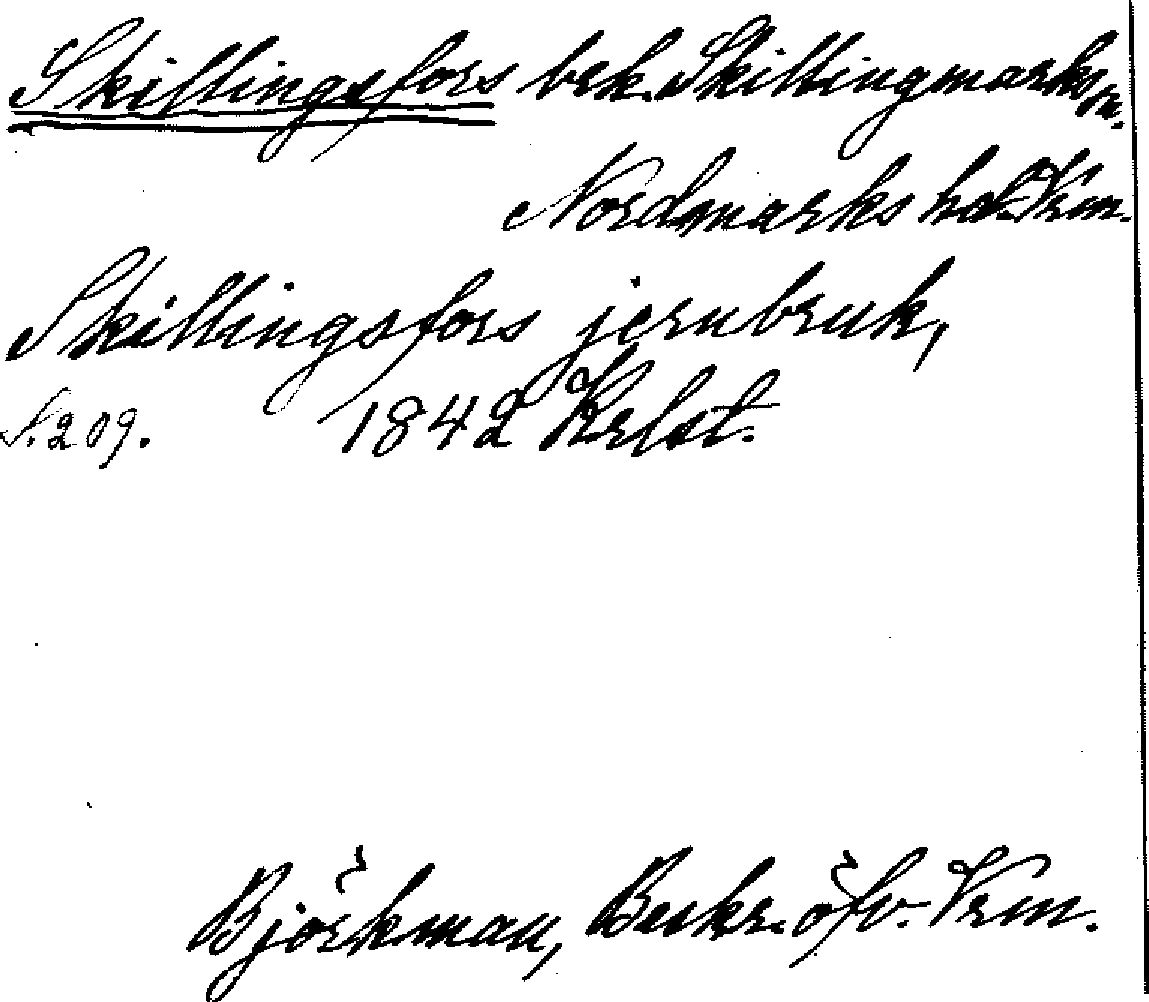 Skillingsfors brk. Skillingmarks sn.
Nordmarks hd. Vrm.
Skillingsfors jernbruk,
S. 209. 1842 Krlst.
Björkman, Beskr. öfv. Vrm.